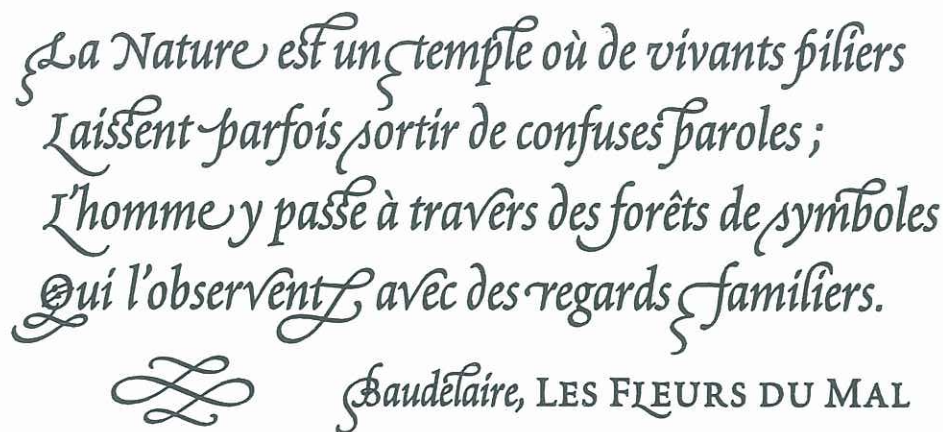 La Nature est un temple où de vivants piliers
Laissent parfois sortir de confuses paroles ;
L'homme y passe à travers des forêts de symboles
Qui l'observent avec des regards familiers.
Baudelaire, LES FLEURS DU MAL